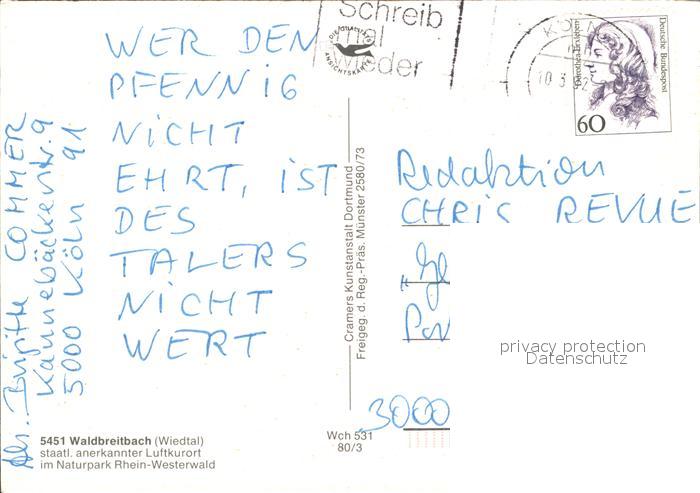 WER DEN
PFENNIG
NICHT
EHRT, IST
DES
TALERS
NICHT
WERT
Abs. Brigitte COMMER
Kannebäckerstr. 9
5000 Köln 91
Schreib
mal
wieder
ANSICHTSKARTE
KÖLN
10.3.
Deutsche Bundespost
60
Cramers Kunstanstalt Dortmund
Freigeg. d. Reg.-Präs. Münster 2580/73
Redaktion
CHRIS REVUE
3000
privacy protection
Datenschutz
5451 Waldbreitbach (Wiedtal)
staatl. anerkannter Luftkurort
im Naturpark Rhein-Westerwald
Wch 531
80/3